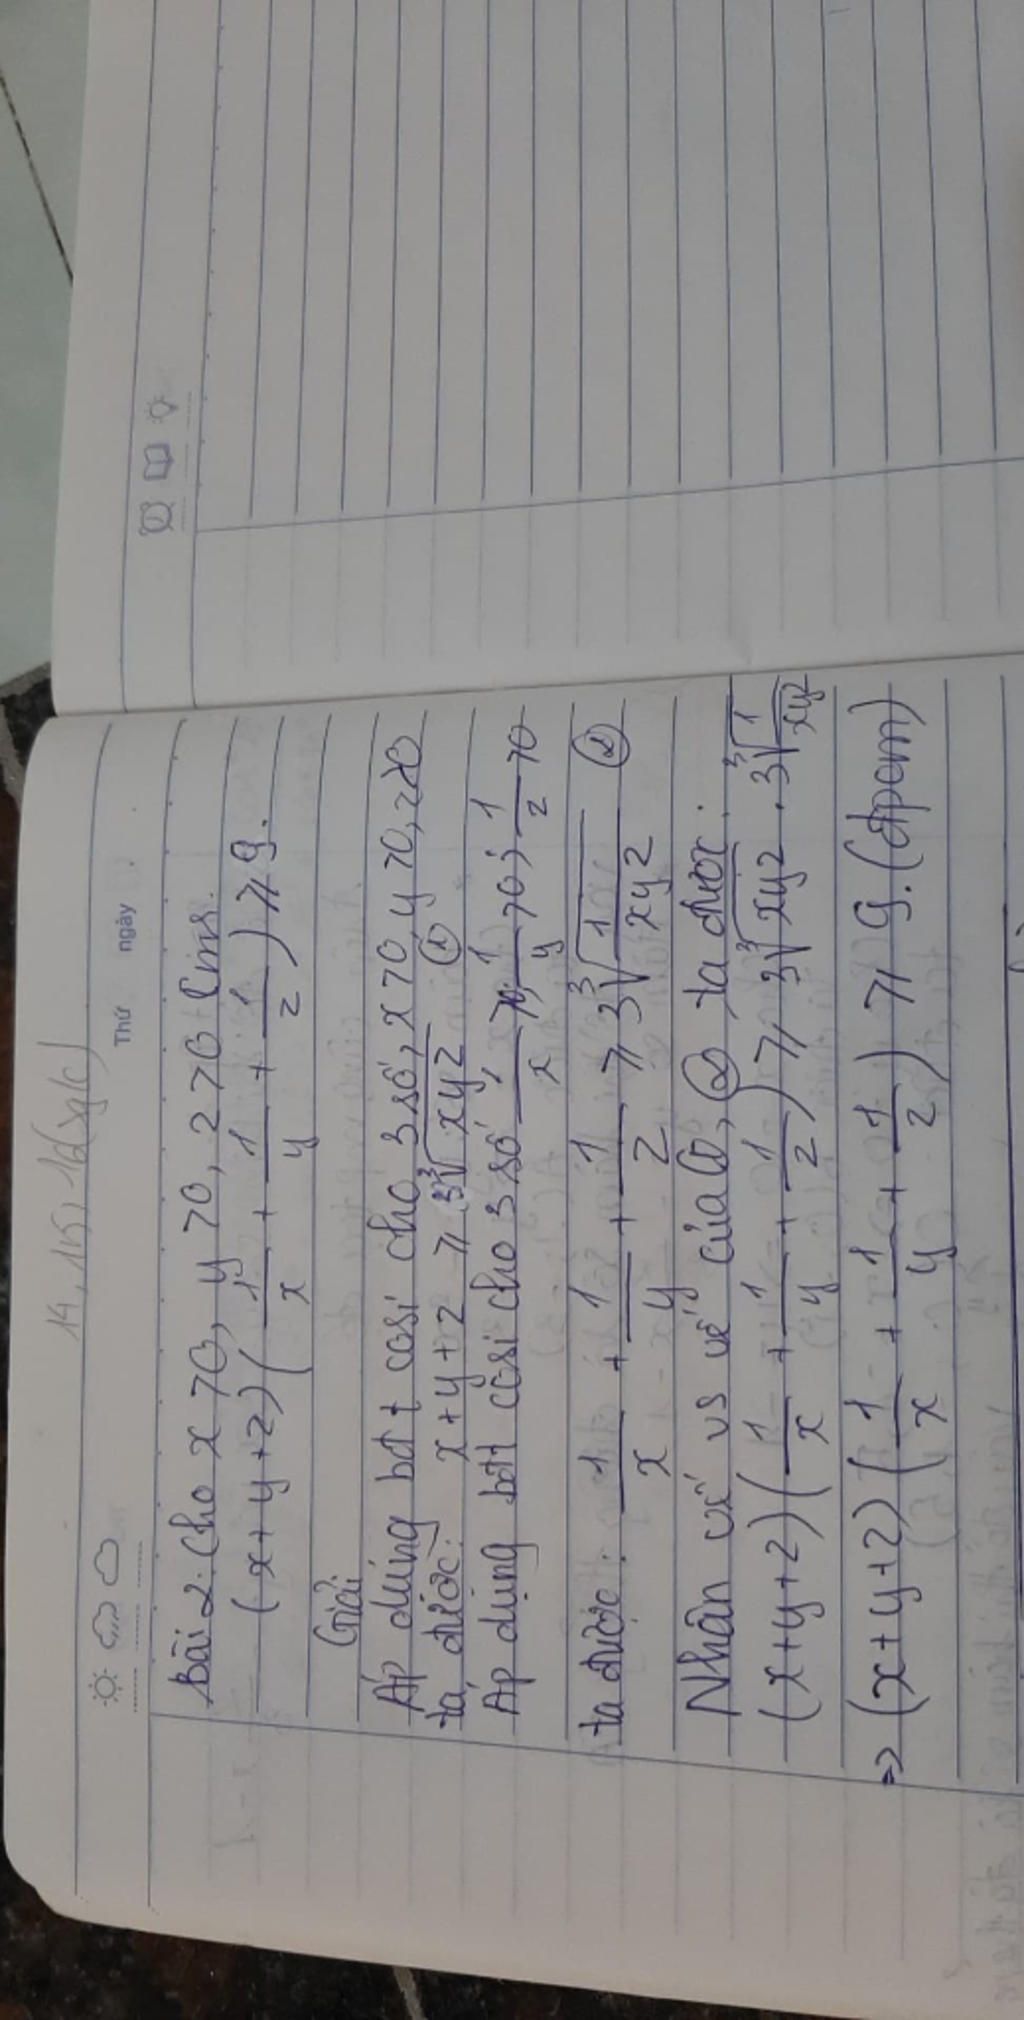 14, 15, 16 (sgk)
Thứ ngày
Bài 2. Cho x > 0, y > 0, z > 0 Cmr.
(x + y + z) (1/x + 1/y + 1/z) ≥ 9.
Giải
Áp dúng bđt cosi cho 3 số, x > 0, y > 0, z > 0
ta được: x + y + z ≥ 3∛xyz ①
Áp dụng bđt cosi cho 3 số 1/x > 0; 1/y > 0; 1/z > 0
ta được: 1/x + 1/y + 1/z ≥ 3∛1/xyz ②
Nhân vế vs vế của ①, ② ta được:
(x + y + z) (1/x + 1/y + 1/z) ≥ 3∛xyz . 3∛1/xyz
=> (x + y + z) (1/x + 1/y + 1/z) ≥ 9. (đpcm)